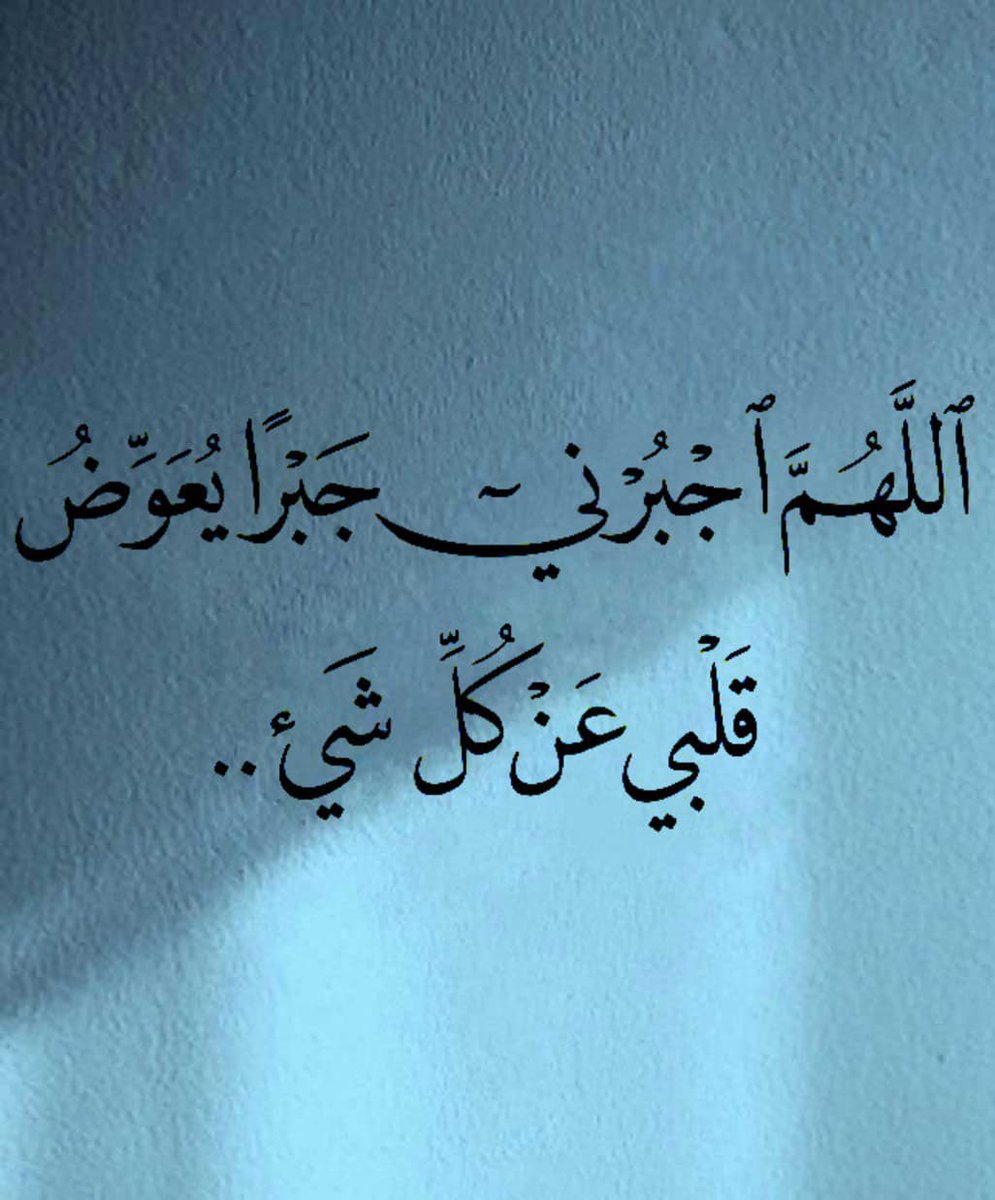 ٱللَّهُمَّ ٱجْبُرْنيۤ جَبْرًا يُعَوِّضُ
قَلْبي عَنْ كُلِّ شَئٍ..